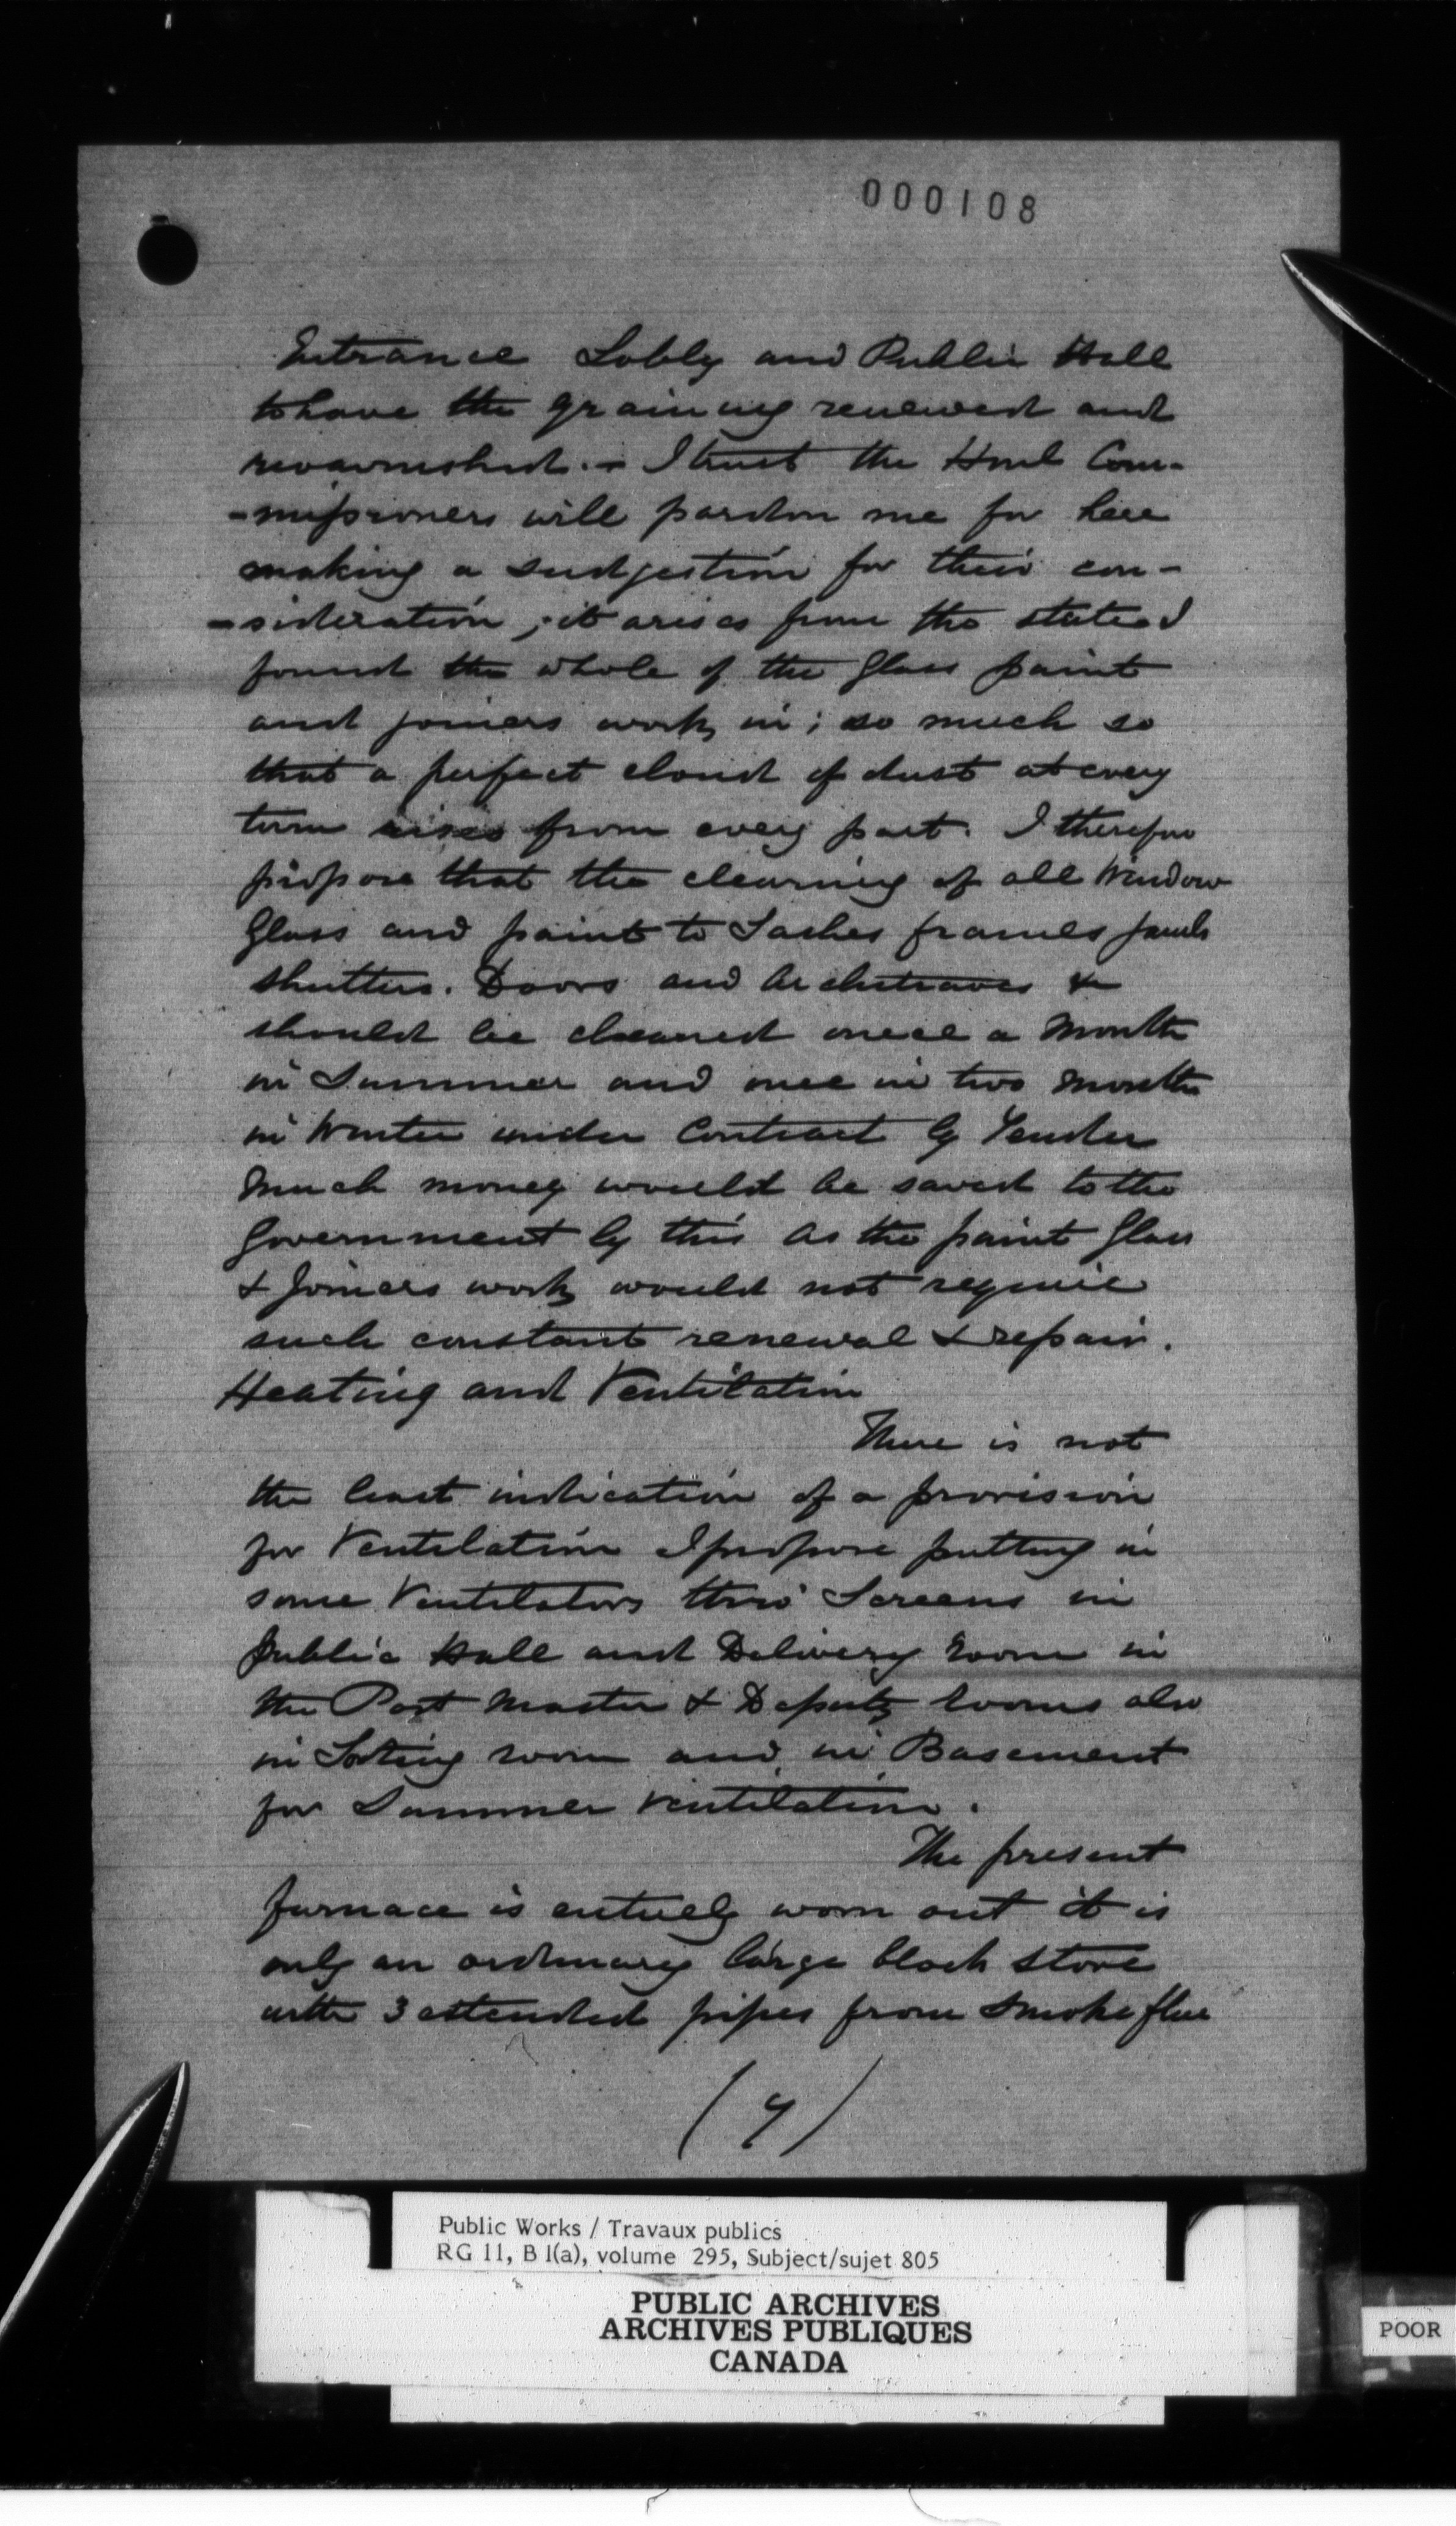 000108
Entrance Lobby and Public Hall
to have the graining renewed and
revarnished. - I trust the Honl Com-
-missioners will pardon me for here
making a sudjestion for their con-
-sideration; it arises from the state I
found the whole of the Glass paint
and joiners work in; so much so
that a perfect cloud of dust at every
turn rises from every part. I therefore
propose that the cleaning of all Window
Glass and paint to Sashes frames panels
shutters. Doors and Architraves &c
should be cleaned once a Month
in Summer and once in two Months
in Winter under Contract by Tender
Much money would be saved to the
Government by this as the paint Glass
& Joiners work would not require
such constant renewal & repair.
Heating and Ventilation
There is not
the least indication of a provision
for Ventilation I propose putting in
some Ventilators thro' Screens in
Public Hall and Delivery room in
the Post Master & Deputy rooms also
in Sorting room and in Basement
for Summer Ventilation.
The present
furnace is entirely worn out it is
only an ordinary large block stove
with 3 extended pipes from Smoke flue
(7)
Public Works / Travaux publics
RG 11, B 1(a), volume 295, Subject/sujet 805
PUBLIC ARCHIVES
ARCHIVES PUBLIQUES
CANADA
POOR